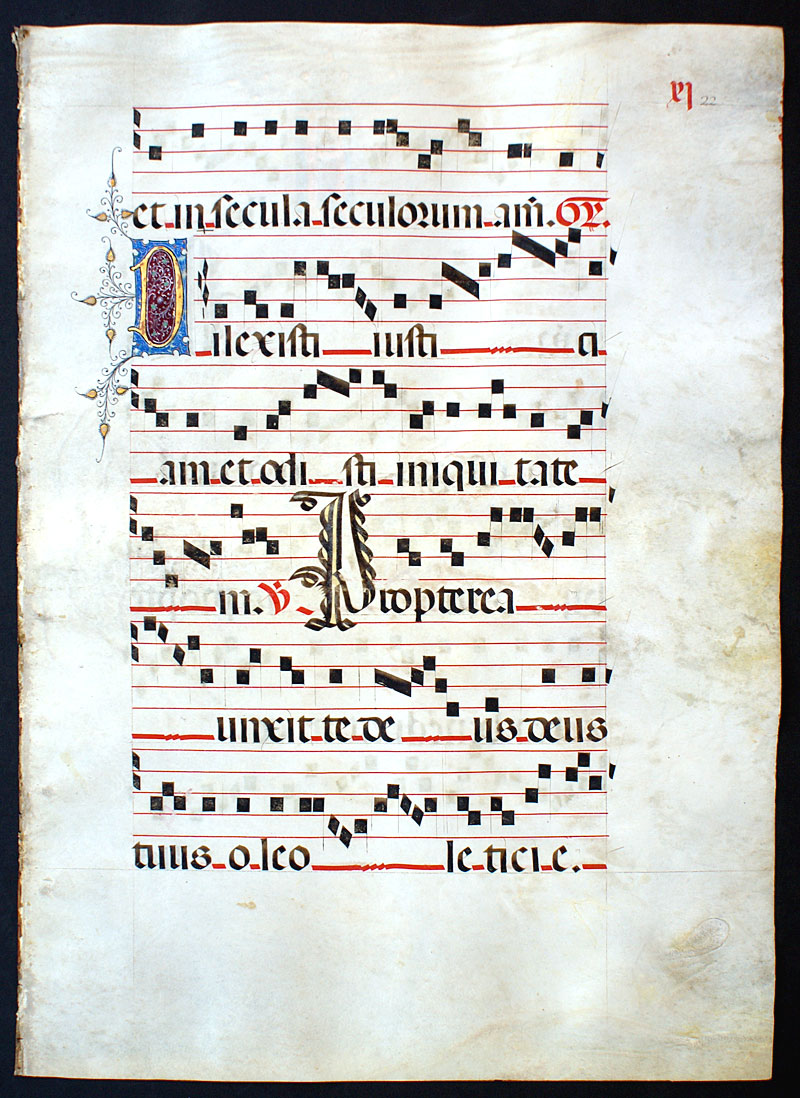 xi 22
et in secula seculorum am̄. Gr̄.
Dilexisti iusti ci
am et odi sti iniqui tate
m. V Propterea
unxit te de us deus
tuus oleo leticie.